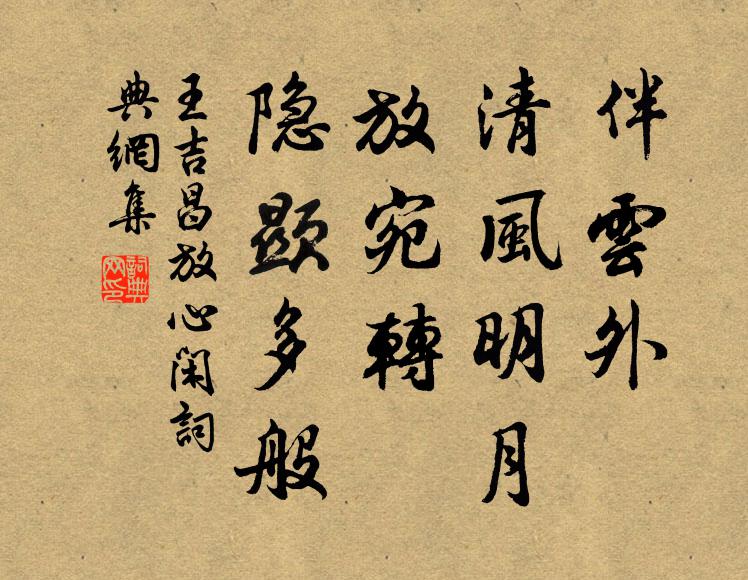 伴雲外
清風明月
放宛轉
隐顯多般
王吉昌放心闲詞
典網集
詞典網印